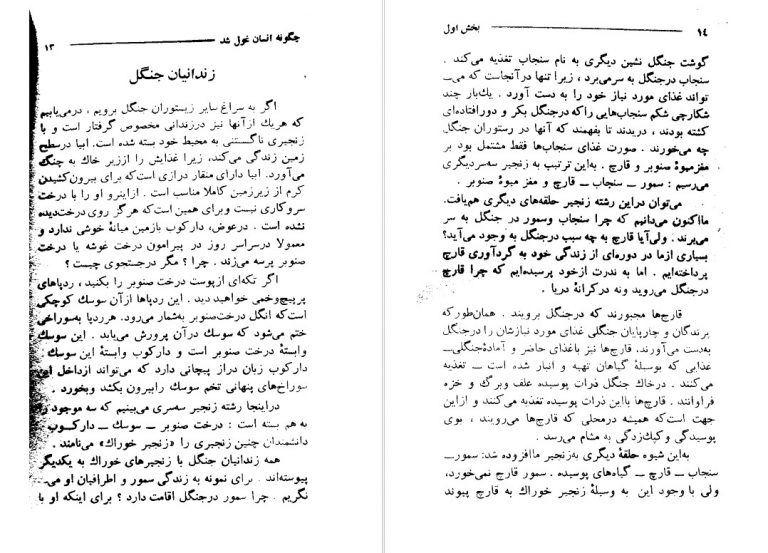 چگونه انسان غول شد ۱۳
زندانیان جنگل
اگر به سراغ سایر زیستوران جنگل برویم ، درمی‌یابیم
که هریك ازآنها نیز درزندانی مخصوص گرفتار است و با
زنجیری ناگسستنی به محیط خود بسته شده است. ابیا درسطح
زمین زندگی می‌کند، زیرا غذایش را اززیر خاك به چنگ
می‌آورد. ابیا دارای منقار درازی است که برای بیرون‌کشیدن
کرم از زیرزمین کاملا مناسب است . ازاینرو او را با درخت
سروکاری نیست وبرای همین است‌که هرگز روی درخت‌دیده
نشده است . درعوض، دارکوب بازمین میانهٔ خوشی ندارد و
معمولا درسراسر روز در پیرامون درخت غوشه یا درخت
صنوبر پرسه می‌زند. چرا ؟ مگر درجستجوی چیست ؟
اگر تکه‌ای ازپوست درخت صنوبر را بکنید ، ردپاهای
پرپیچ‌وخمی خواهید دید . این ردپاها ازآن سوسك کوچکی
است‌که انگل درخت صنوبر به‌شمار می‌رود. هرردپا به‌سوراخی
ختم می‌شود که سوسك درآن پرورش می‌یابد . این سوسك
وابستهٔ درخت صنوبر است و دارکوب وابستهٔ این سوسك .
دارکوب زبان دراز پیچانی دارد که می‌تواند ازداخل این
سوراخ‌های پنهانی تخم سوسك رابیرون بکشد وبخورد .
دراینجا رشته زنجیر سه‌سری می‌بینیم که سه موجود را
به هم بسته است : درخت صنوبر ــ سوسك ــ دارکوب .
دانشمندان چنین زنجیری را «زنجیر خوراك» می‌نامند .
همه زندانیان جنگل با زنجیرهای خوراك به یکدیگر
پیوسته‌اند . برای نمونه به زندگی سمور و اطرافیان او می‌ـ
نگریم . چرا سمور درجنگل اقامت دارد ؟ برای اینکه او با
۱٤ بخش اول
گوشت جنگل نشین دیگری به نام سنجاب تغذیه می‌کند .
سنجاب درجنگل به سرمی‌برد ، زیرا تنها درآنجاست که می‌ـ
تواند غذای مورد نیاز خود را به دست آورد . یك‌بار چند
شکارچی شکم سنجاب‌هایی راکه درجنگل بکر و دورافتاده‌ای
کشته بودند ، دریدند تا بفهمند که آنها در رستوران جنگل
چه می‌خورند . صورت غذای سنجاب‌ها فقط مشتمل بود بر
مغزمیوهٔ صنوبر و قارچ . به‌این ترتیب به زنجیر سه‌سردیگری
می‌رسیم : سمور ــ سنجاب ــ قارچ و مغز میوهٔ صنوبر .
می‌توان دراین رشته زنجیر حلقه‌های دیگری هم‌یافت.
مااکنون می‌دانیم که چرا سنجاب وسمور در جنگل به سر
می‌برند . ولی‌آیا قارچ به چه سبب درجنگل به وجود می‌آید؟
بسیاری ازما در دوره‌ای از زندگی خود به گردآوری قارچ
پرداخته‌ایم . اما به ندرت ازخود پرسیده‌ایم که چرا قارچ
درجنگل می‌روید ونه درکرانهٔ دریا .
قارچ‌ها مجبورند که درجنگل برویند . همان‌طورکه
پرندگان و چارپایان جنگلی غذای مورد نیازشان را درجنگل
به‌دست می‌آورند. قارچ‌ها نیز باغذای حاضر و آمادهٔ‌جنگلی‌ــ
غذایی که بوسیلهٔ گیاهان تهیه و انبار شده است ــ تغذیه
می‌کنند . درخاك جنگل ذرات پوسیده علف وبرگ و خزه
فراوانند . قارچ‌ها بااین ذرات پوسیده تغذیه می‌کنند و ازاین
جهت است‌که همیشه درمحلی که قارچ‌ها می‌رویند ، بوی
پوسیدگی وکپك‌زدگی به مشام می‌رسد .
به‌این شیوه حلقهٔ دیگری به‌زنجیر ماافزوده شد: سمورــ
سنجاب ــ قارچ ــ گیاه‌های پوسیده . سمور قارچ نمی‌خورد،
ولی با وجود این به وسیلهٔ زنجیر خوراك به قارچ پیوند